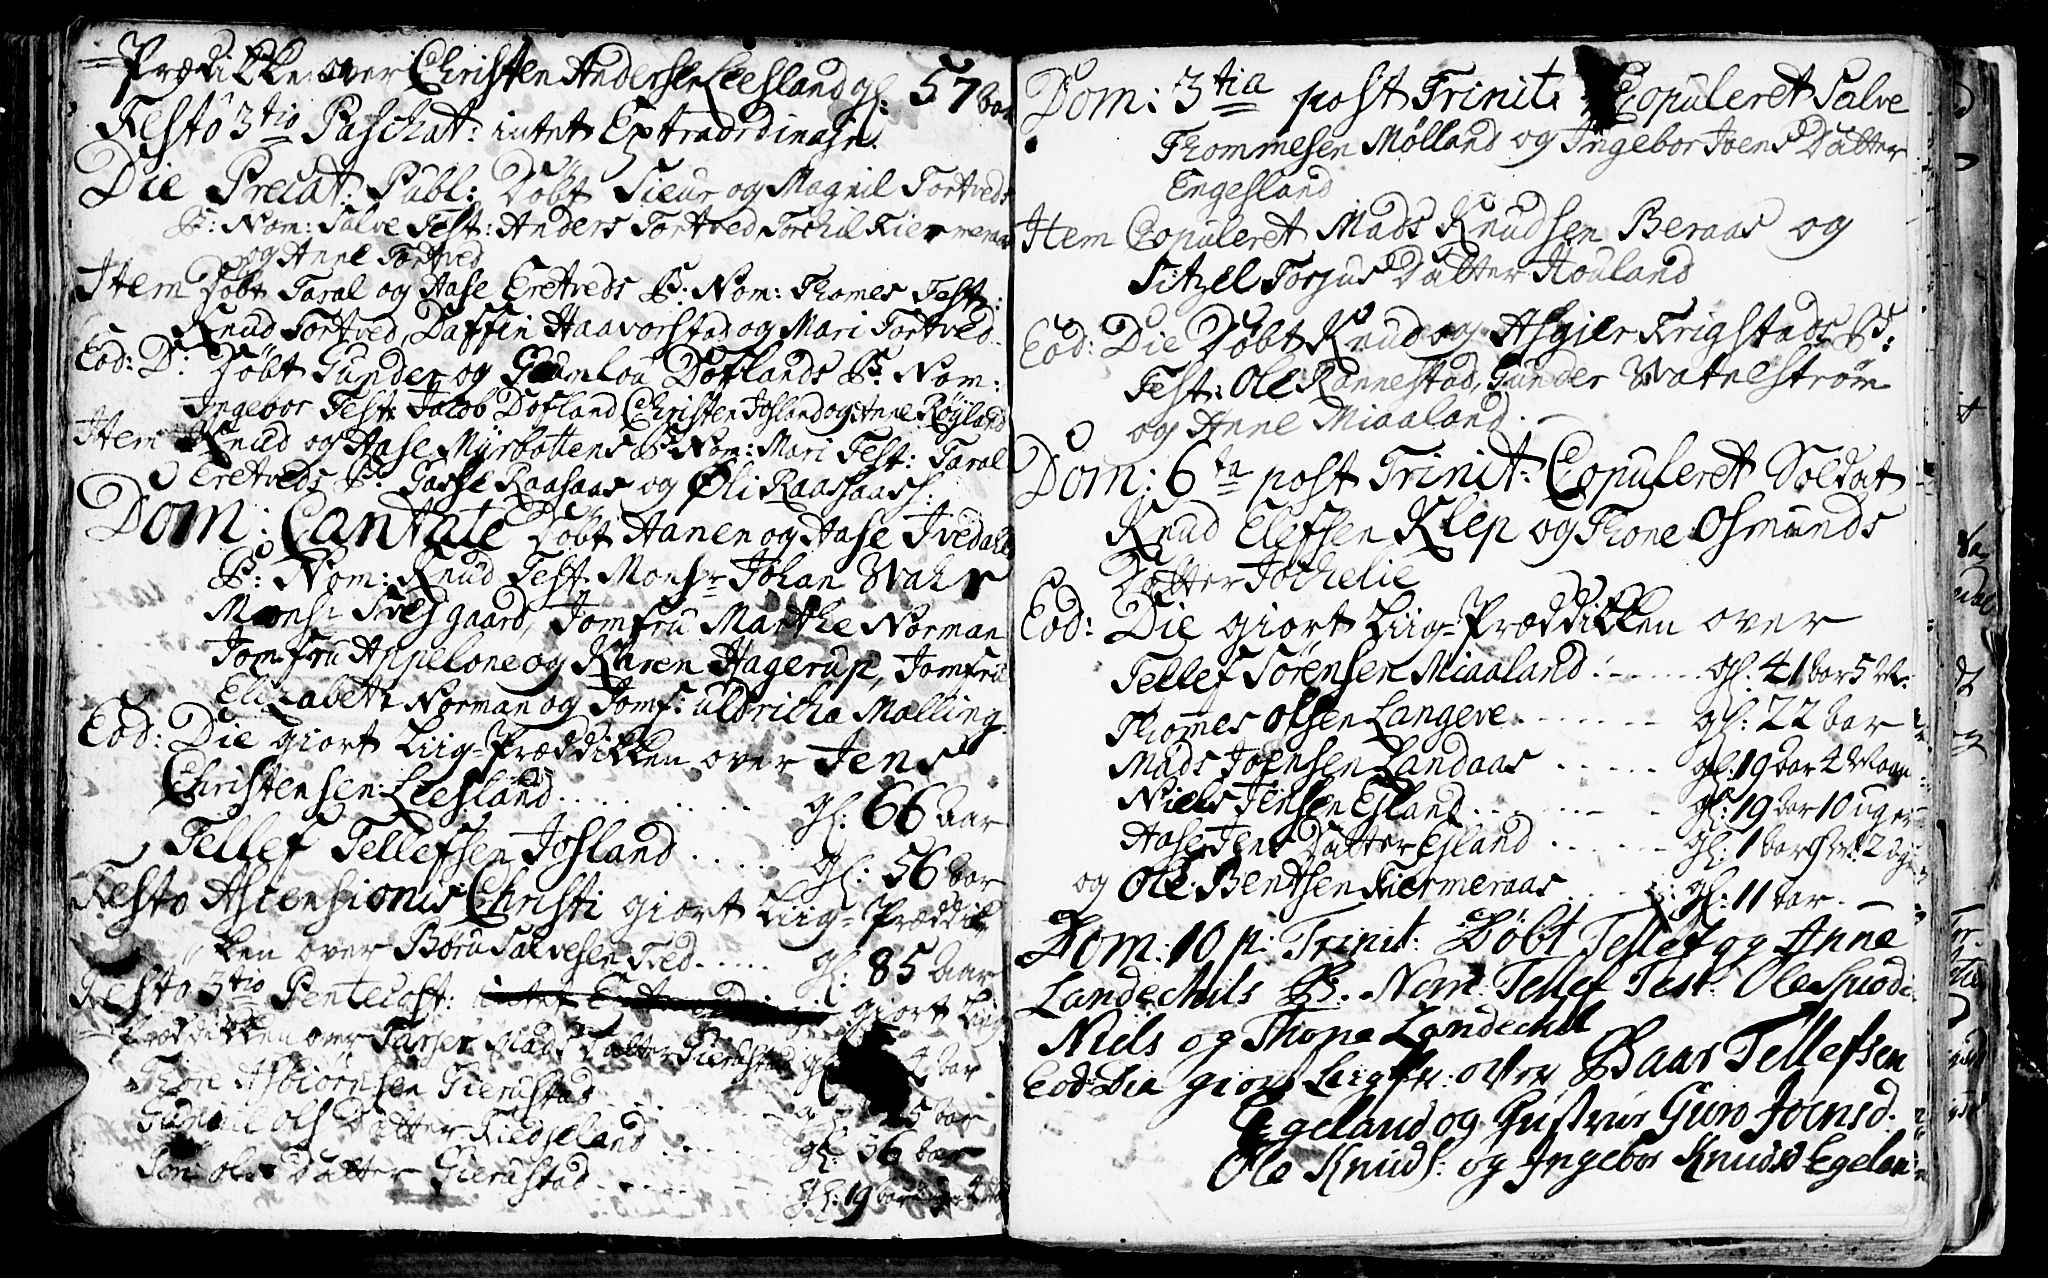 Prædikken over Christen Andersen Leesland gl: 57 aar
Festo 3tio Paschat: intet Extraordinasn.
Die Precat: Publ: Døbt Sieur og Magnil Tortveds
B: Nom: Salve Test: Anders Tortved Torchil Kiermeraas
og Anne Tortved
Item Døbt Taral og Aase Eretveds B: Nom: Thomes Test:
Knud Tortved, Daffin Haavorstad og Mari Tortved
Eod: D: Døbt Gunder og Gunlou Doflands B: Nom:
Ingebor Test: Jacob Dofland Christen Josland og Anne Røyland
Item Knud og Aase Myrbottens B: Nom: Mari Test: Taral
Eretveds Gasse Raasaas og Øli Raasaas
Dom: Cantate Døbt Hanen og Aase Ivedahls
B: Nom: Knud Test: Monsr Johan Wahr
Monsr Tveggaard, Jomfru Marthe Norman
Jomfru Appelone og Karen Hagerup, Jomfru
Elizabeth Norman og Jomf: Uldricha Malling.
Eod: Die giort Liig-Præddikken over Jens
Christensen Leesland . . . gl: 66 aar
Tellef Tellefsen Josland . . . gl: 56 aar
Festo Ascensionis Christi giort Liig-Præddik
ken over Børu Salvesen Tved . . . gl: 85 aar
Festo 3tio Pentecost: intet giort Liig
Præddikken over Mads Datter Gierustad gl: 4 aar
Thore Asbiørnsen Gierustad . . . gl: 5 aar
Gunnil Ols Datter Kiedseland . . . gl: 36 aar
Ols Datter Gierustad . . . gl: 19 aar
Dom: 3tia post Trinit: Copuleret Salve
Thommesen Mølland og Ingebor Joens Datter
Engesland
Item Copuleret Mads Knudsen Beraas og
Sitzel Torjus Datter Houland
Eod: Die Døbt Knud og Asgier Frigstads B:
Test: Ole Rannestad, Gunder Watnestrøm
og Anne Miaaland. —
Dom: 6ta post Trinit: Copuleret Soldat
Knud Elefsen Klep og Thone Osmunds
Datter Jochelie
Eod: Die giort Liig-Præddikken over
Tellef Sørensen Miaaland . . . gl: 41 aar 5 M.
Thomes Olsen Langeve . . . gl: 22 aar
Mads Joensen Landaas . . . gl: 19 aar 4 Maan
Niels Jensen Esland . . . gl: 19 aar 10 uger
Aase Jens Datter Esland . . . gl: 1 aar 9 M: 2
og Ole Bentsen Kiermeraas . . . gl: 11 aar. —
Dom: 10 p: Trinit: Døbt Tellef og Anne
Landechils B. Nom: Tellef Test: Ole
Niels og Thone Landechil
Eod: Die giort Liigpr: over Baar Tellefsen
Egeland og Hustrue Guro Joensd.
Ole Knuds: og Ingebor Knudsd Egelan